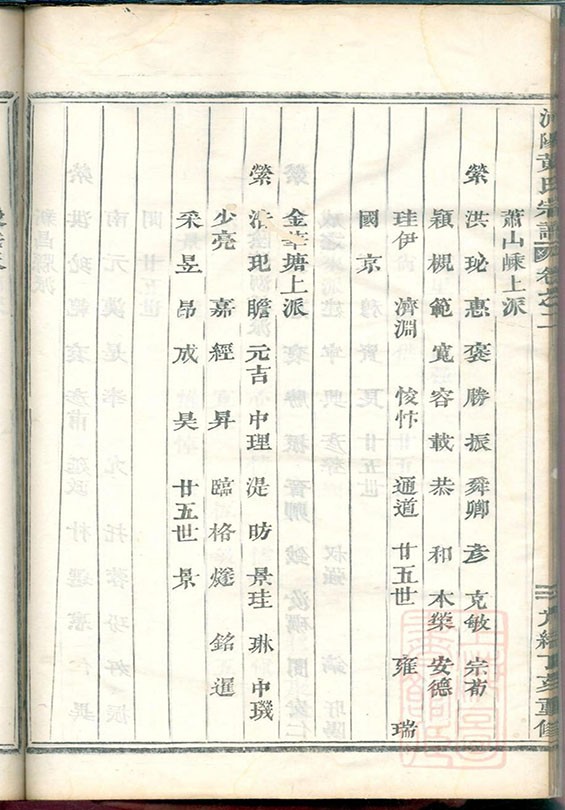 黄氏宗譜 卷之二
光緒丁亥重修
蕭山嵊上派
縈 洪 珌 惠 褒 勝 振 舜卿 彥 克敏 宗
穎 槻 範 寬 容 載 恭 和 木榮 安德
珪伊 濟淵 悛忭 通道 廿五世 雍 瑞
國 京
金華塘上派
縈 浩 玘 瞻 元吉 中理 湜 昉 景珪 琳 中璣
少亮 嘉 經 昇 臨 格 燧 銘 暹
采 昱 昂 成 昊 廿五世 景